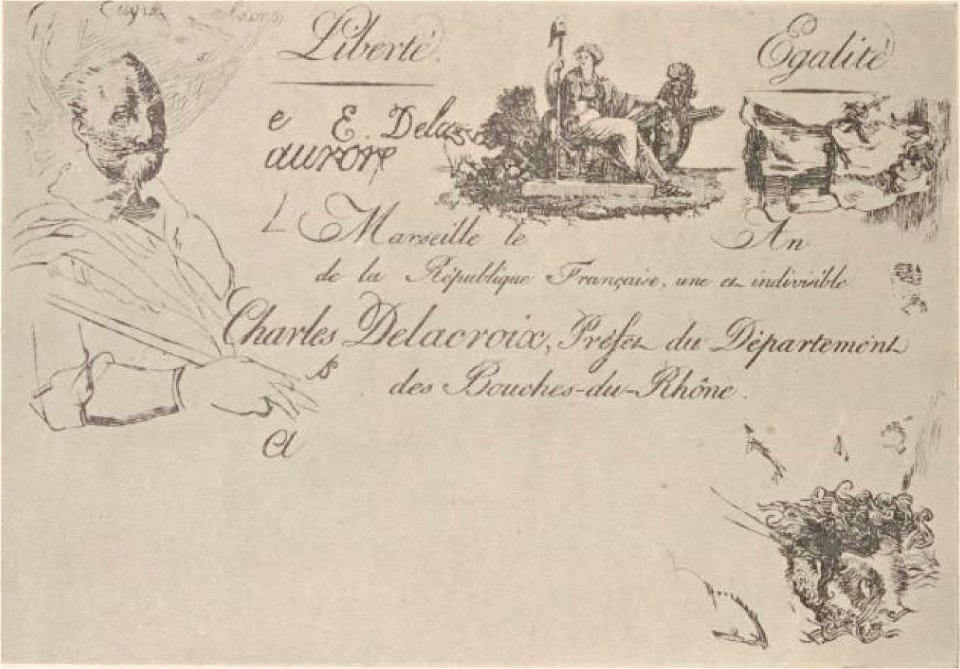 Liberté. Egalité
e E. Dela
aurore
L Marseille le An
de la République Française, une et indivisible
Charles Delacroix, Préfet du Département
des Bouches-du-Rhône.
B
Cl